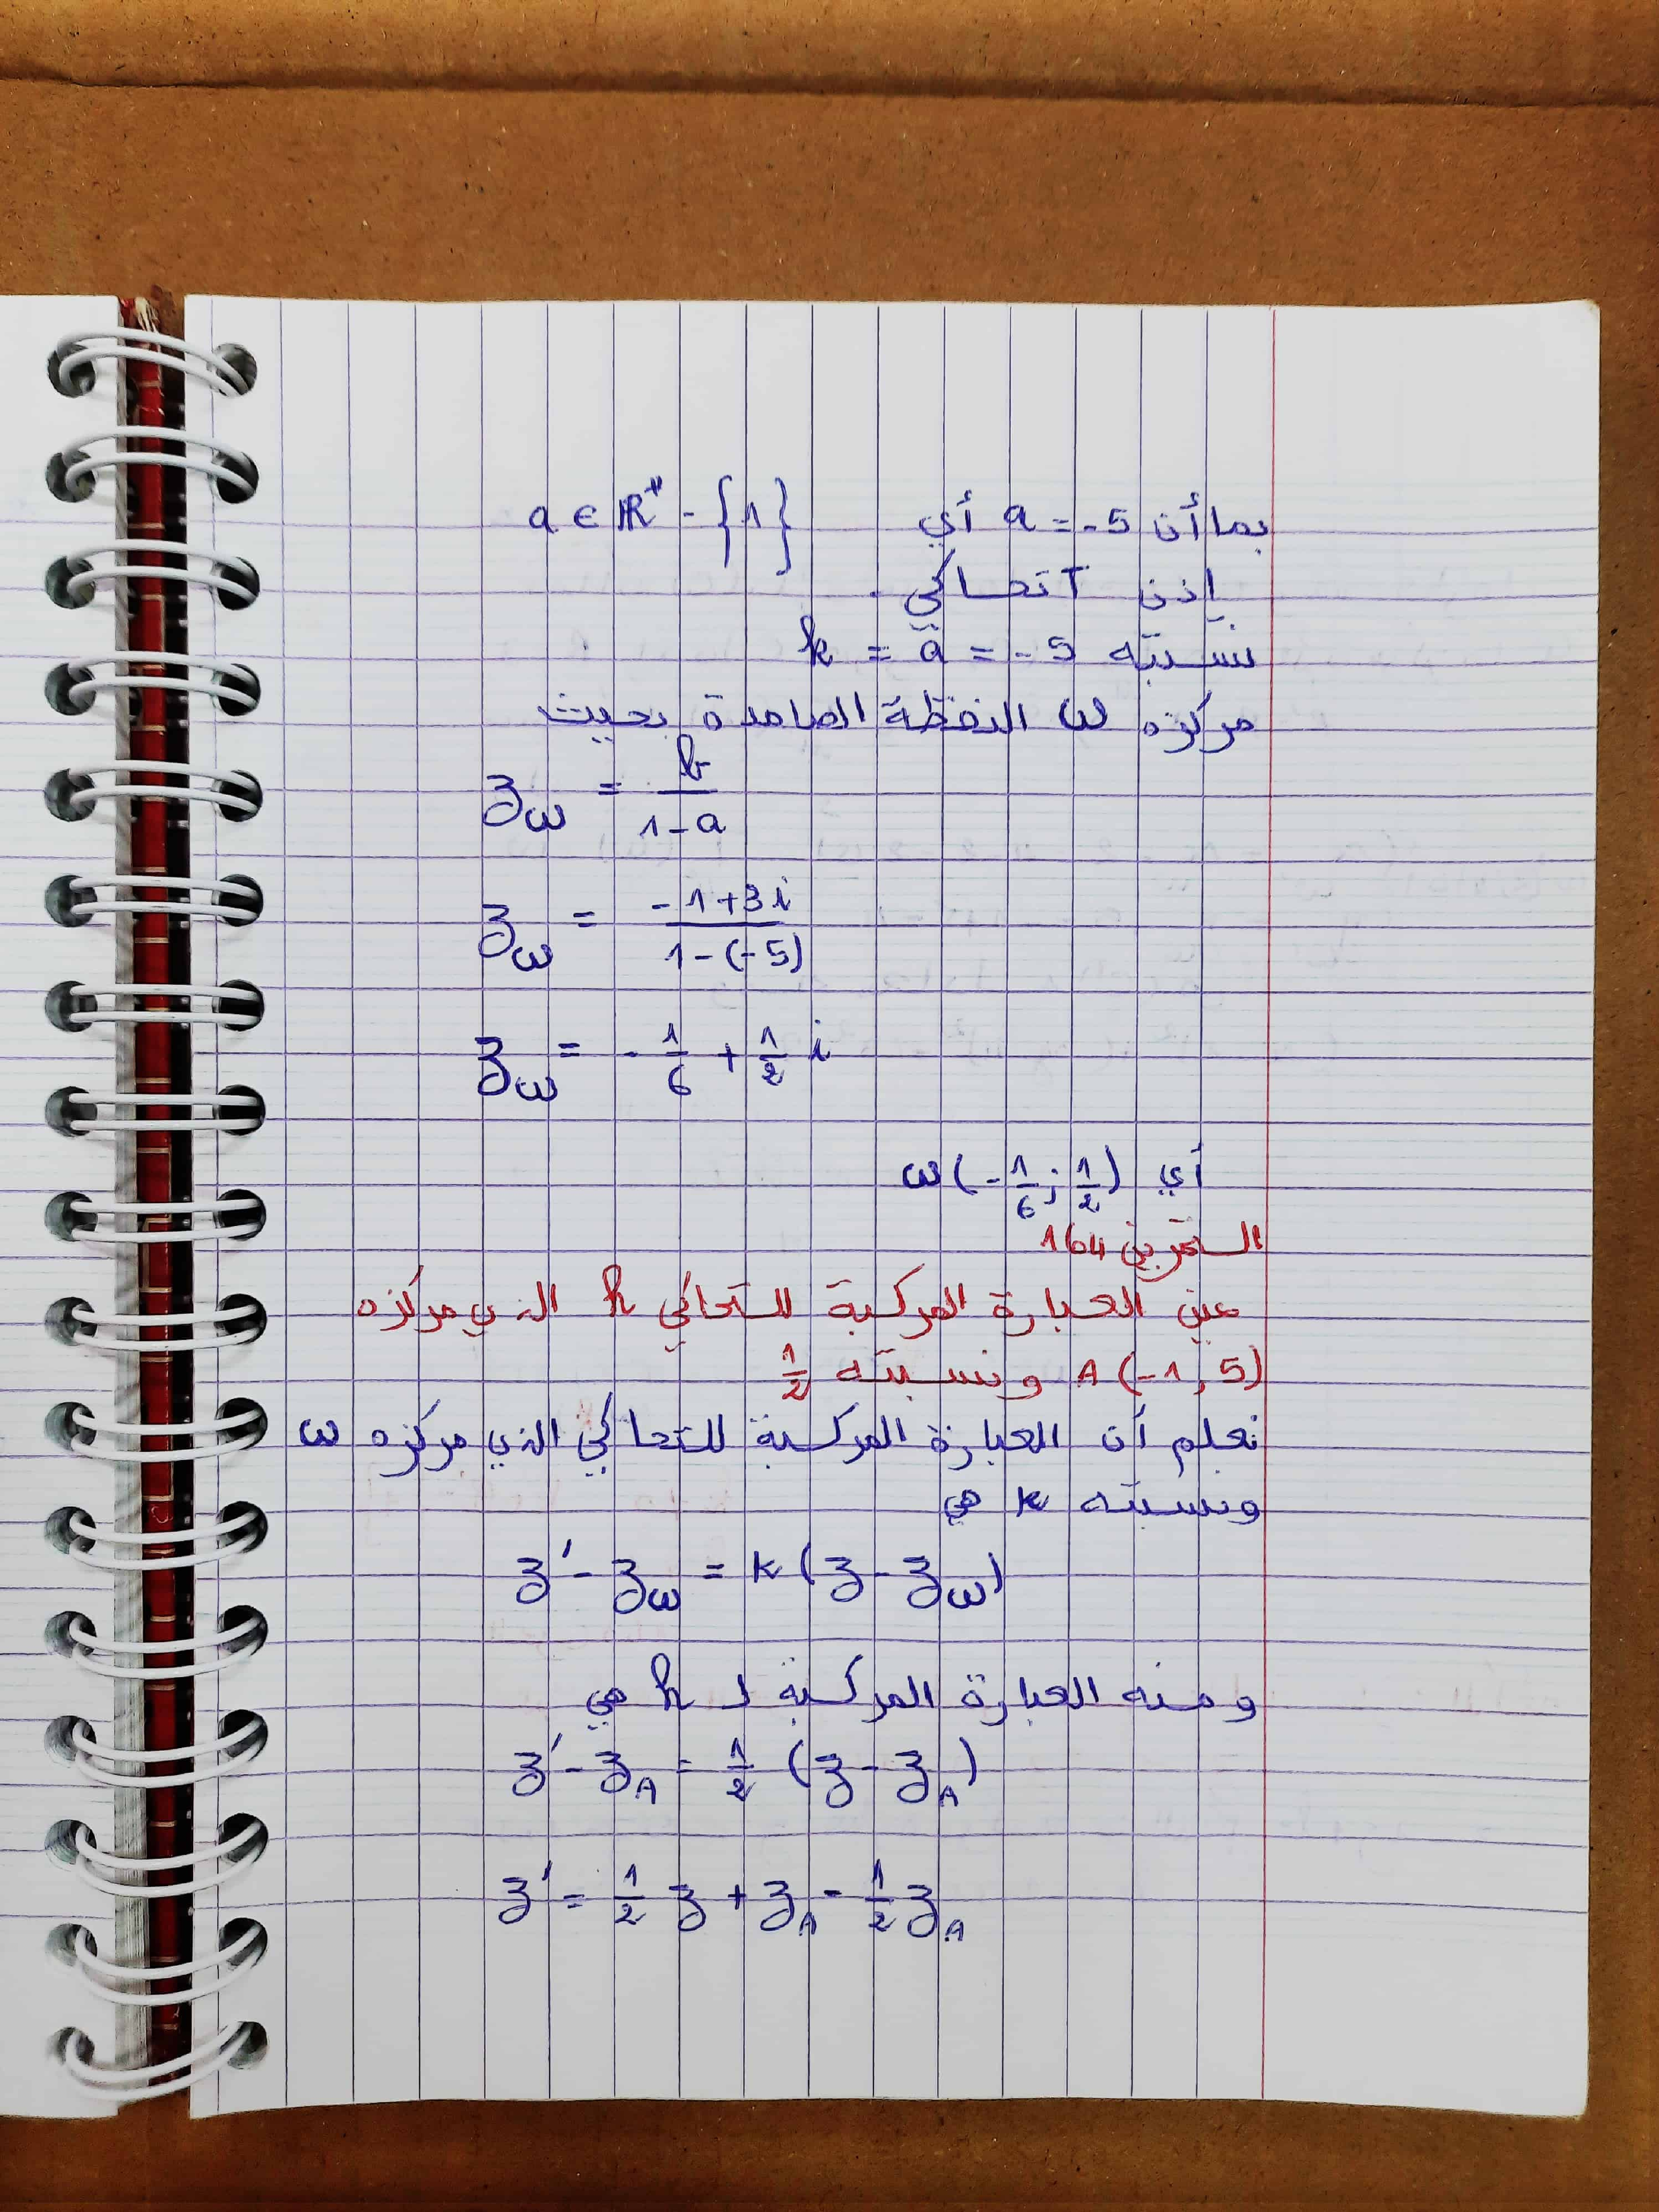 بما أن a = -5 أي a ∈ ℝ* - {1}
إذن T تحاكي .
نسبته k = a = -5
مركزه ω النقطة الصامدة بحيث
z_ω = b / (1 - a)
z_ω = (-1 + 3i) / (1 - (-5))
z_ω = - 1/6 + 1/2 i
أي ω(- 1/6 ; 1/2)
التمرين 164
عين العبارة المركبة للتحاكي h الذي مركزه
A (-1, 5) ونسبته 1/2
نعلم أن العبارة المركبة للتحاكي الذي مركزه ω
ونسبته k هي
z' - z_ω = k (z - z_ω)
ومنه العبارة المركبة لـ h هي
z' - z_A = 1/2 (z - z_A)
z' = 1/2 z + z_A - 1/2 z_A